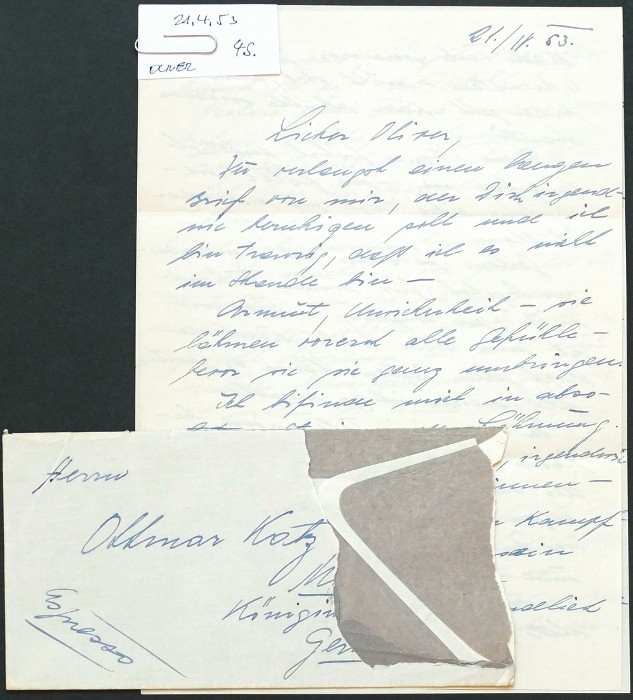 21.4.53
4S.
OLIVER
21./IV. 53.
Lieber Oliver,
Du verlangst einen langen
Brief von mir, der Dich irgend-
wie beruhigen soll und ich
bin traurig, daß ich es nicht
im Stande bin —
Armut, Unsicherheit — sie
lähmen vorerst alle Gefühle —
bevor sie sie ganz umbringen.
Ich befinde mich in abso-
Lähmung.
, irgendwie
innen —
Kampf-
ein
endlich
Herrn
Ottmar Katz
M
Königin
Ger
Espresso